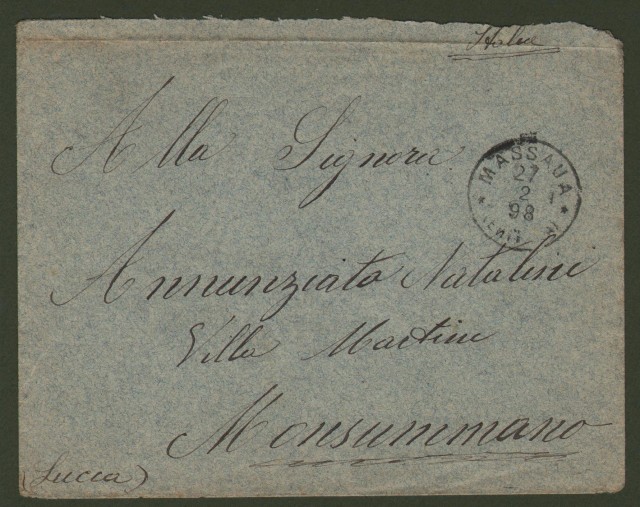 Italia
Alla Signora
MASSAUA
27
2
98
Annunziata Natalini
Villa Martini
Monsummano
(Lucca)